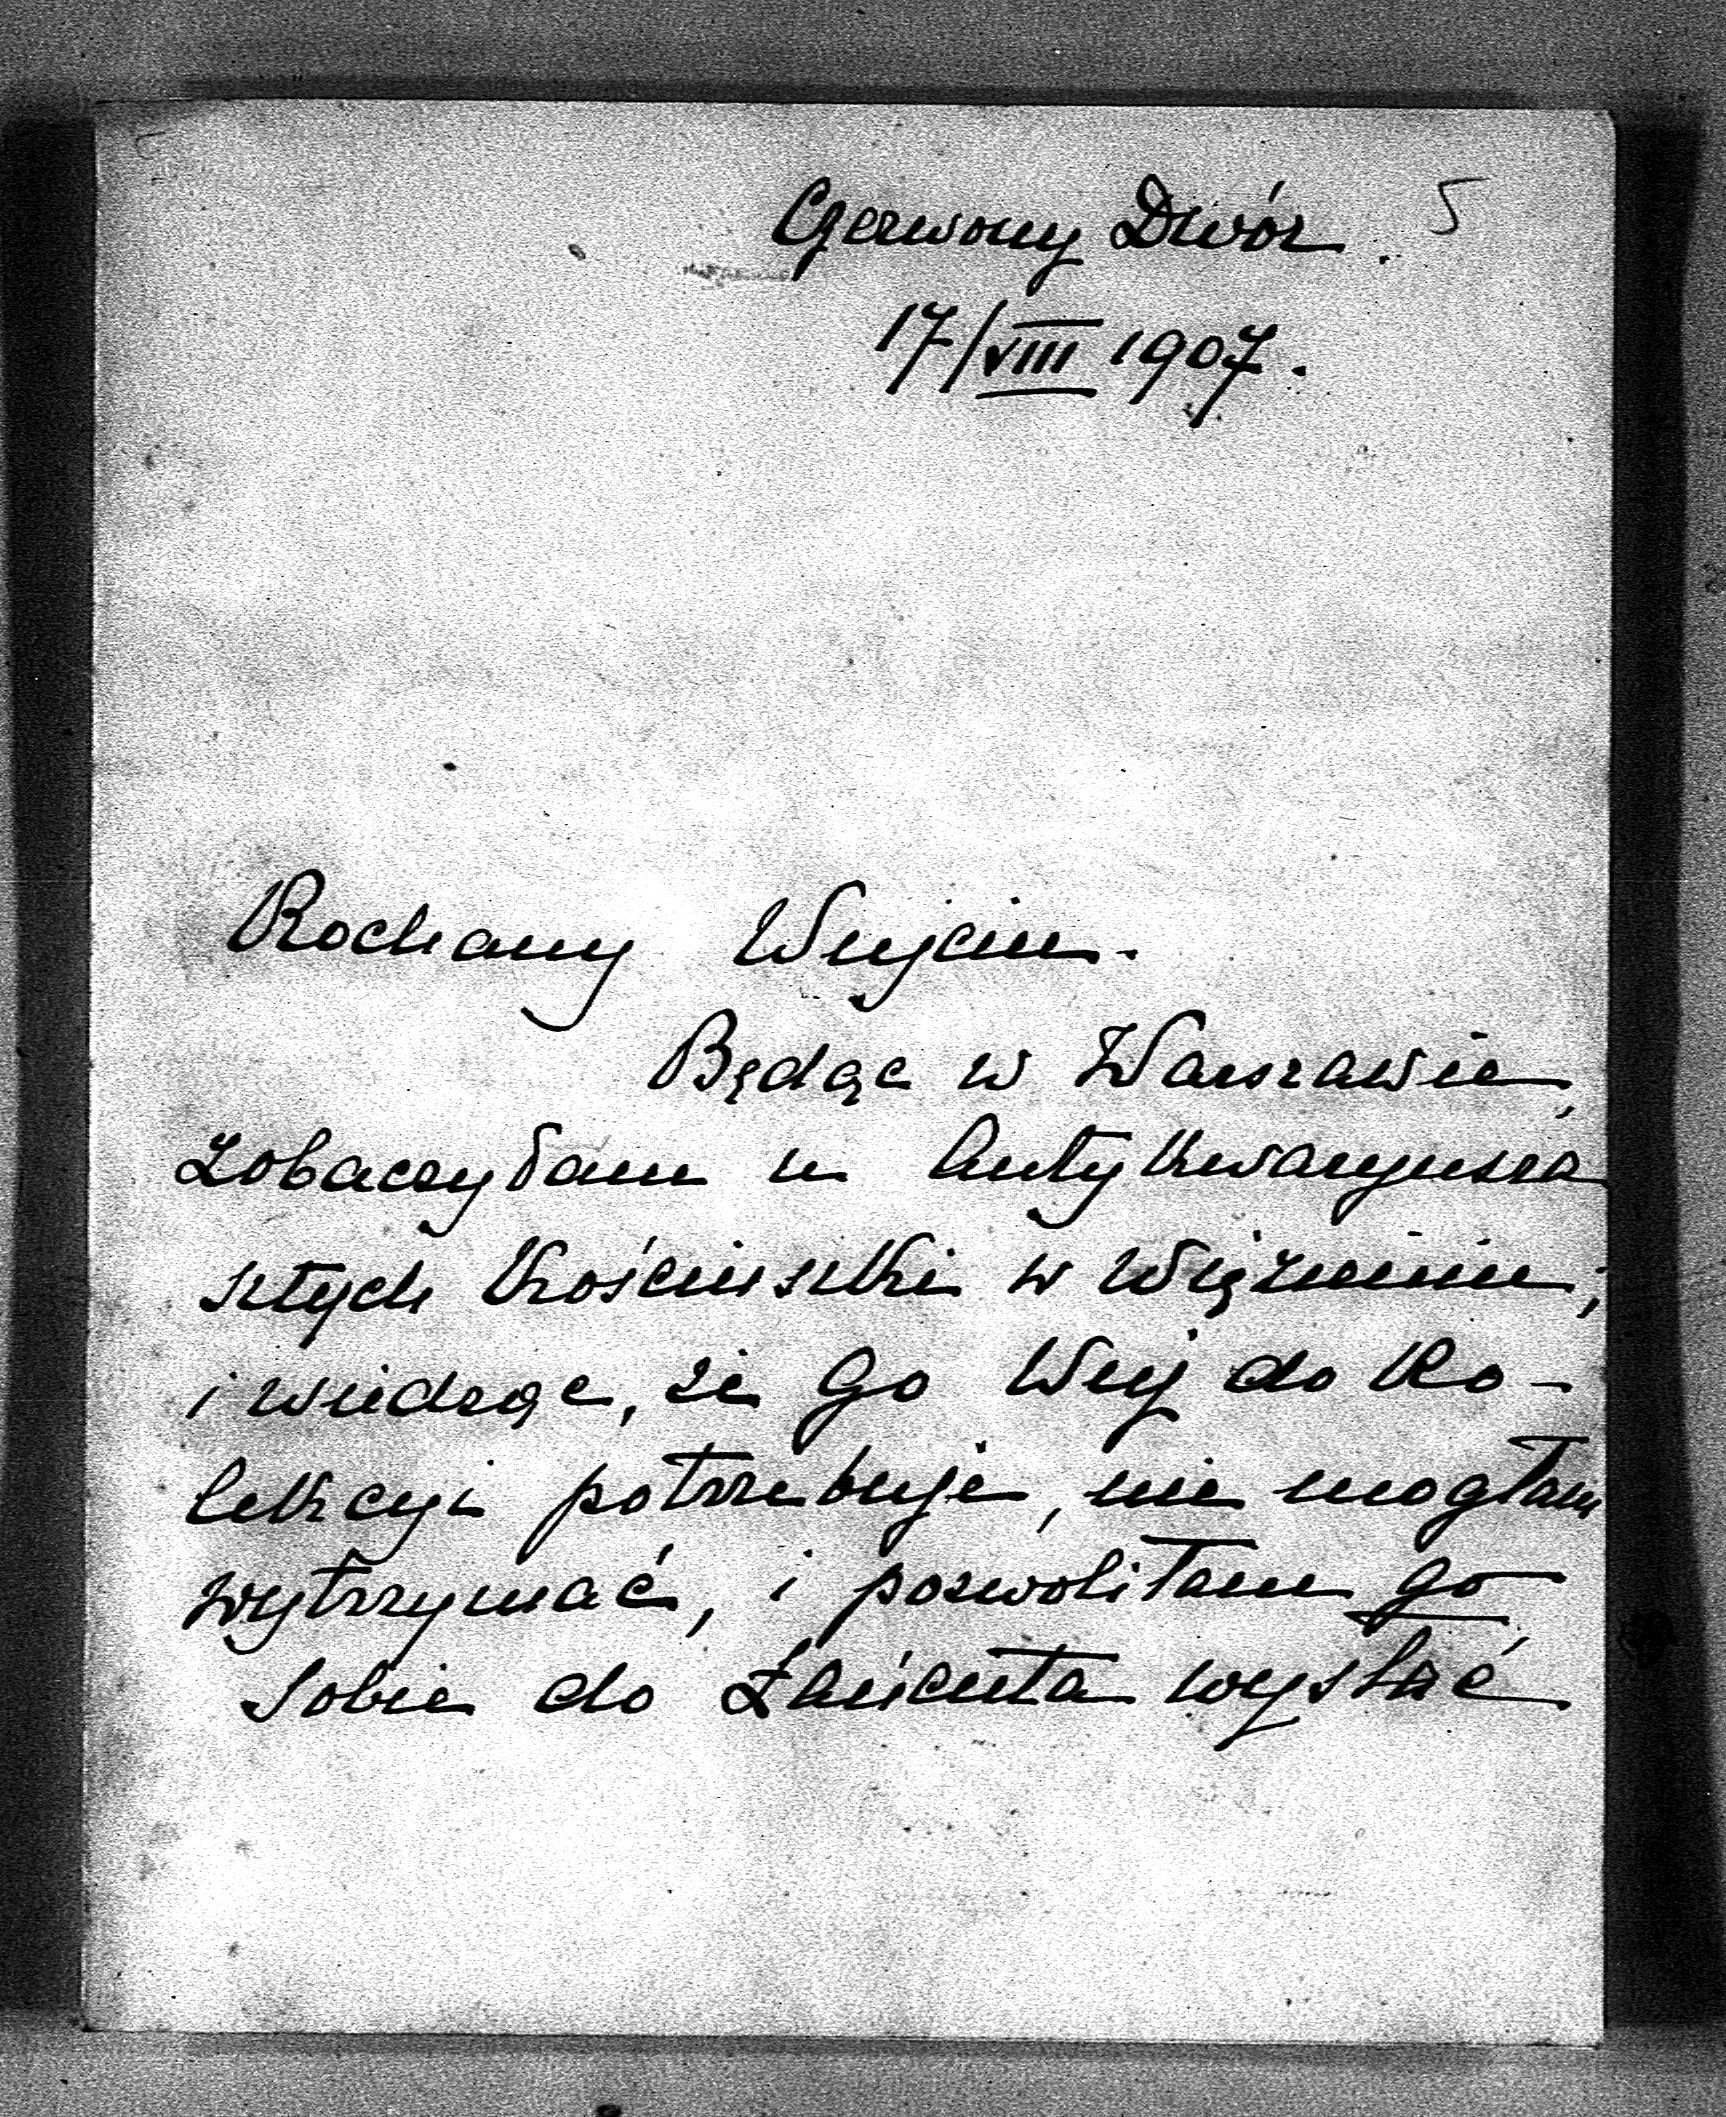 Czerwony Dwór. 5
17/VIII 1907.
Kochany Wujciu.
Będąc w Warszawie,
zobaczyłam u Antykwaryusza
sztych Kościuszki w Więzieniu;
i wiedząc, że Go Wuj do Ko-
lekcyi potrzebuje, nie mogłam
wytrzymać, i pozwoliłam go
sobie do Łańcuta wysłać